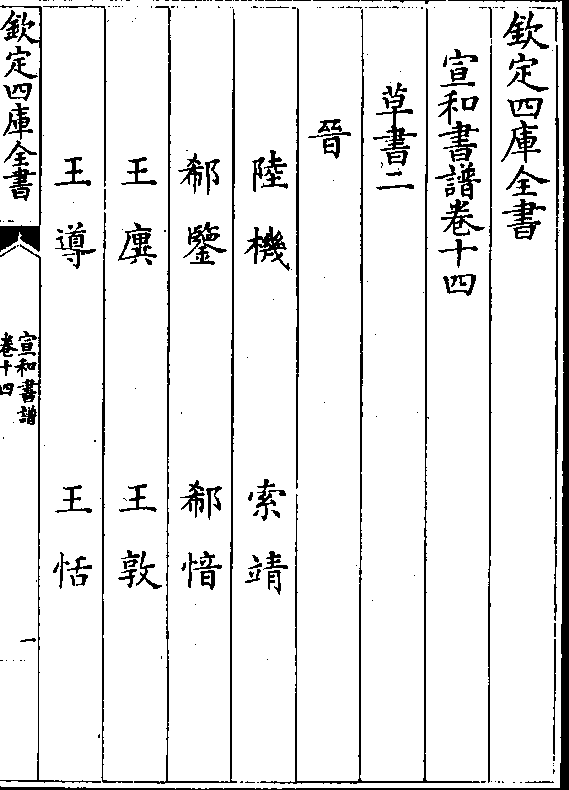 欽定四庫全書
宣和書譜卷十四
草書二
晉
陸機 索靖
郗鑒 郗愔
王廙 王敦
王導 王恬
欽定四庫全書
宣和書譜
卷十四
一